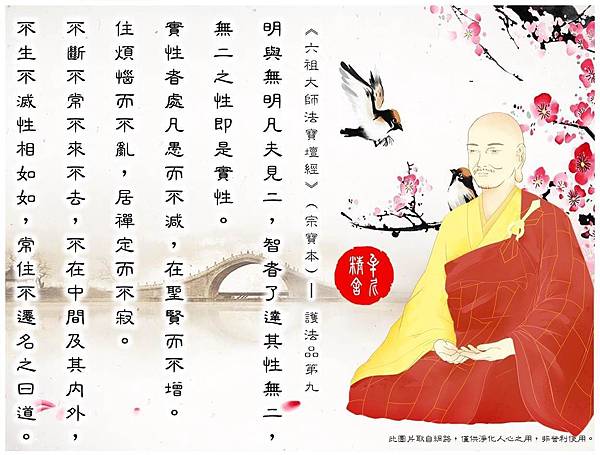 《六祖大師法寶壇經》（宗寶本）— 護法品第九
明與無明凡夫見二，智者了達其性無二，
無二之性即是實性。
實性者處凡愚而不減，在聖賢而不增。
住煩惱而不亂，居禪定而不寂。
不斷不常不來不去，不在中間及其內外，
不生不滅性相如如，常住不遷名之曰道。
精舍
此圖片取自網路，僅供淨化人心之用，非營利使用。